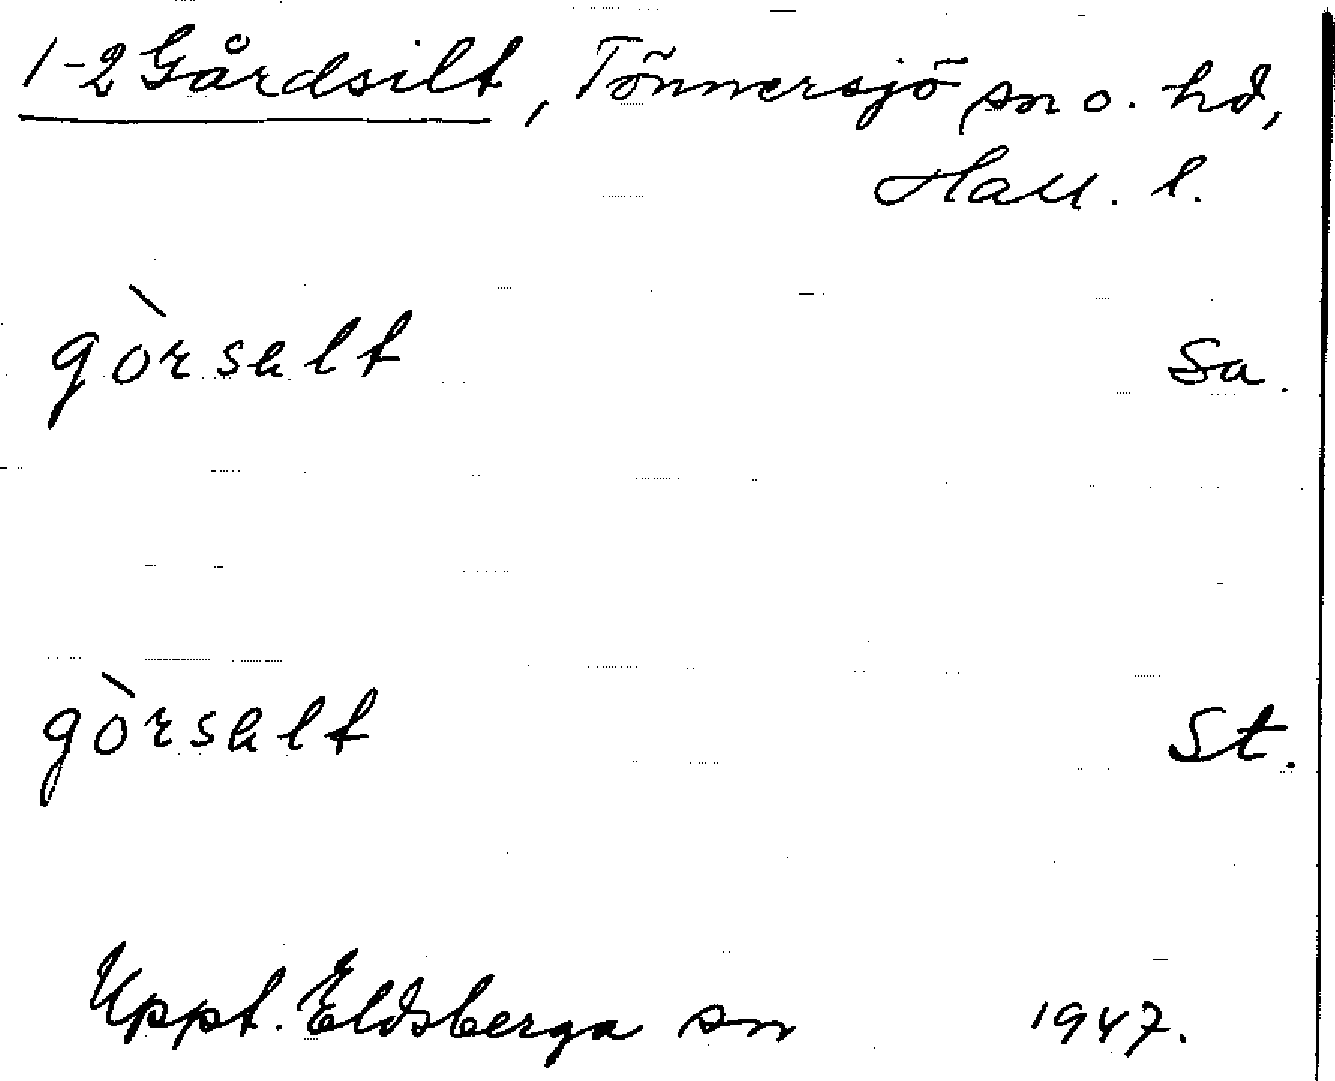 1-2 Gårdsilt, Tönnersjö sn o. hd,
Hall. l.
gòrsalt Sa.
gòrsalt St.
Uppt. Eldsberga sn 1947.